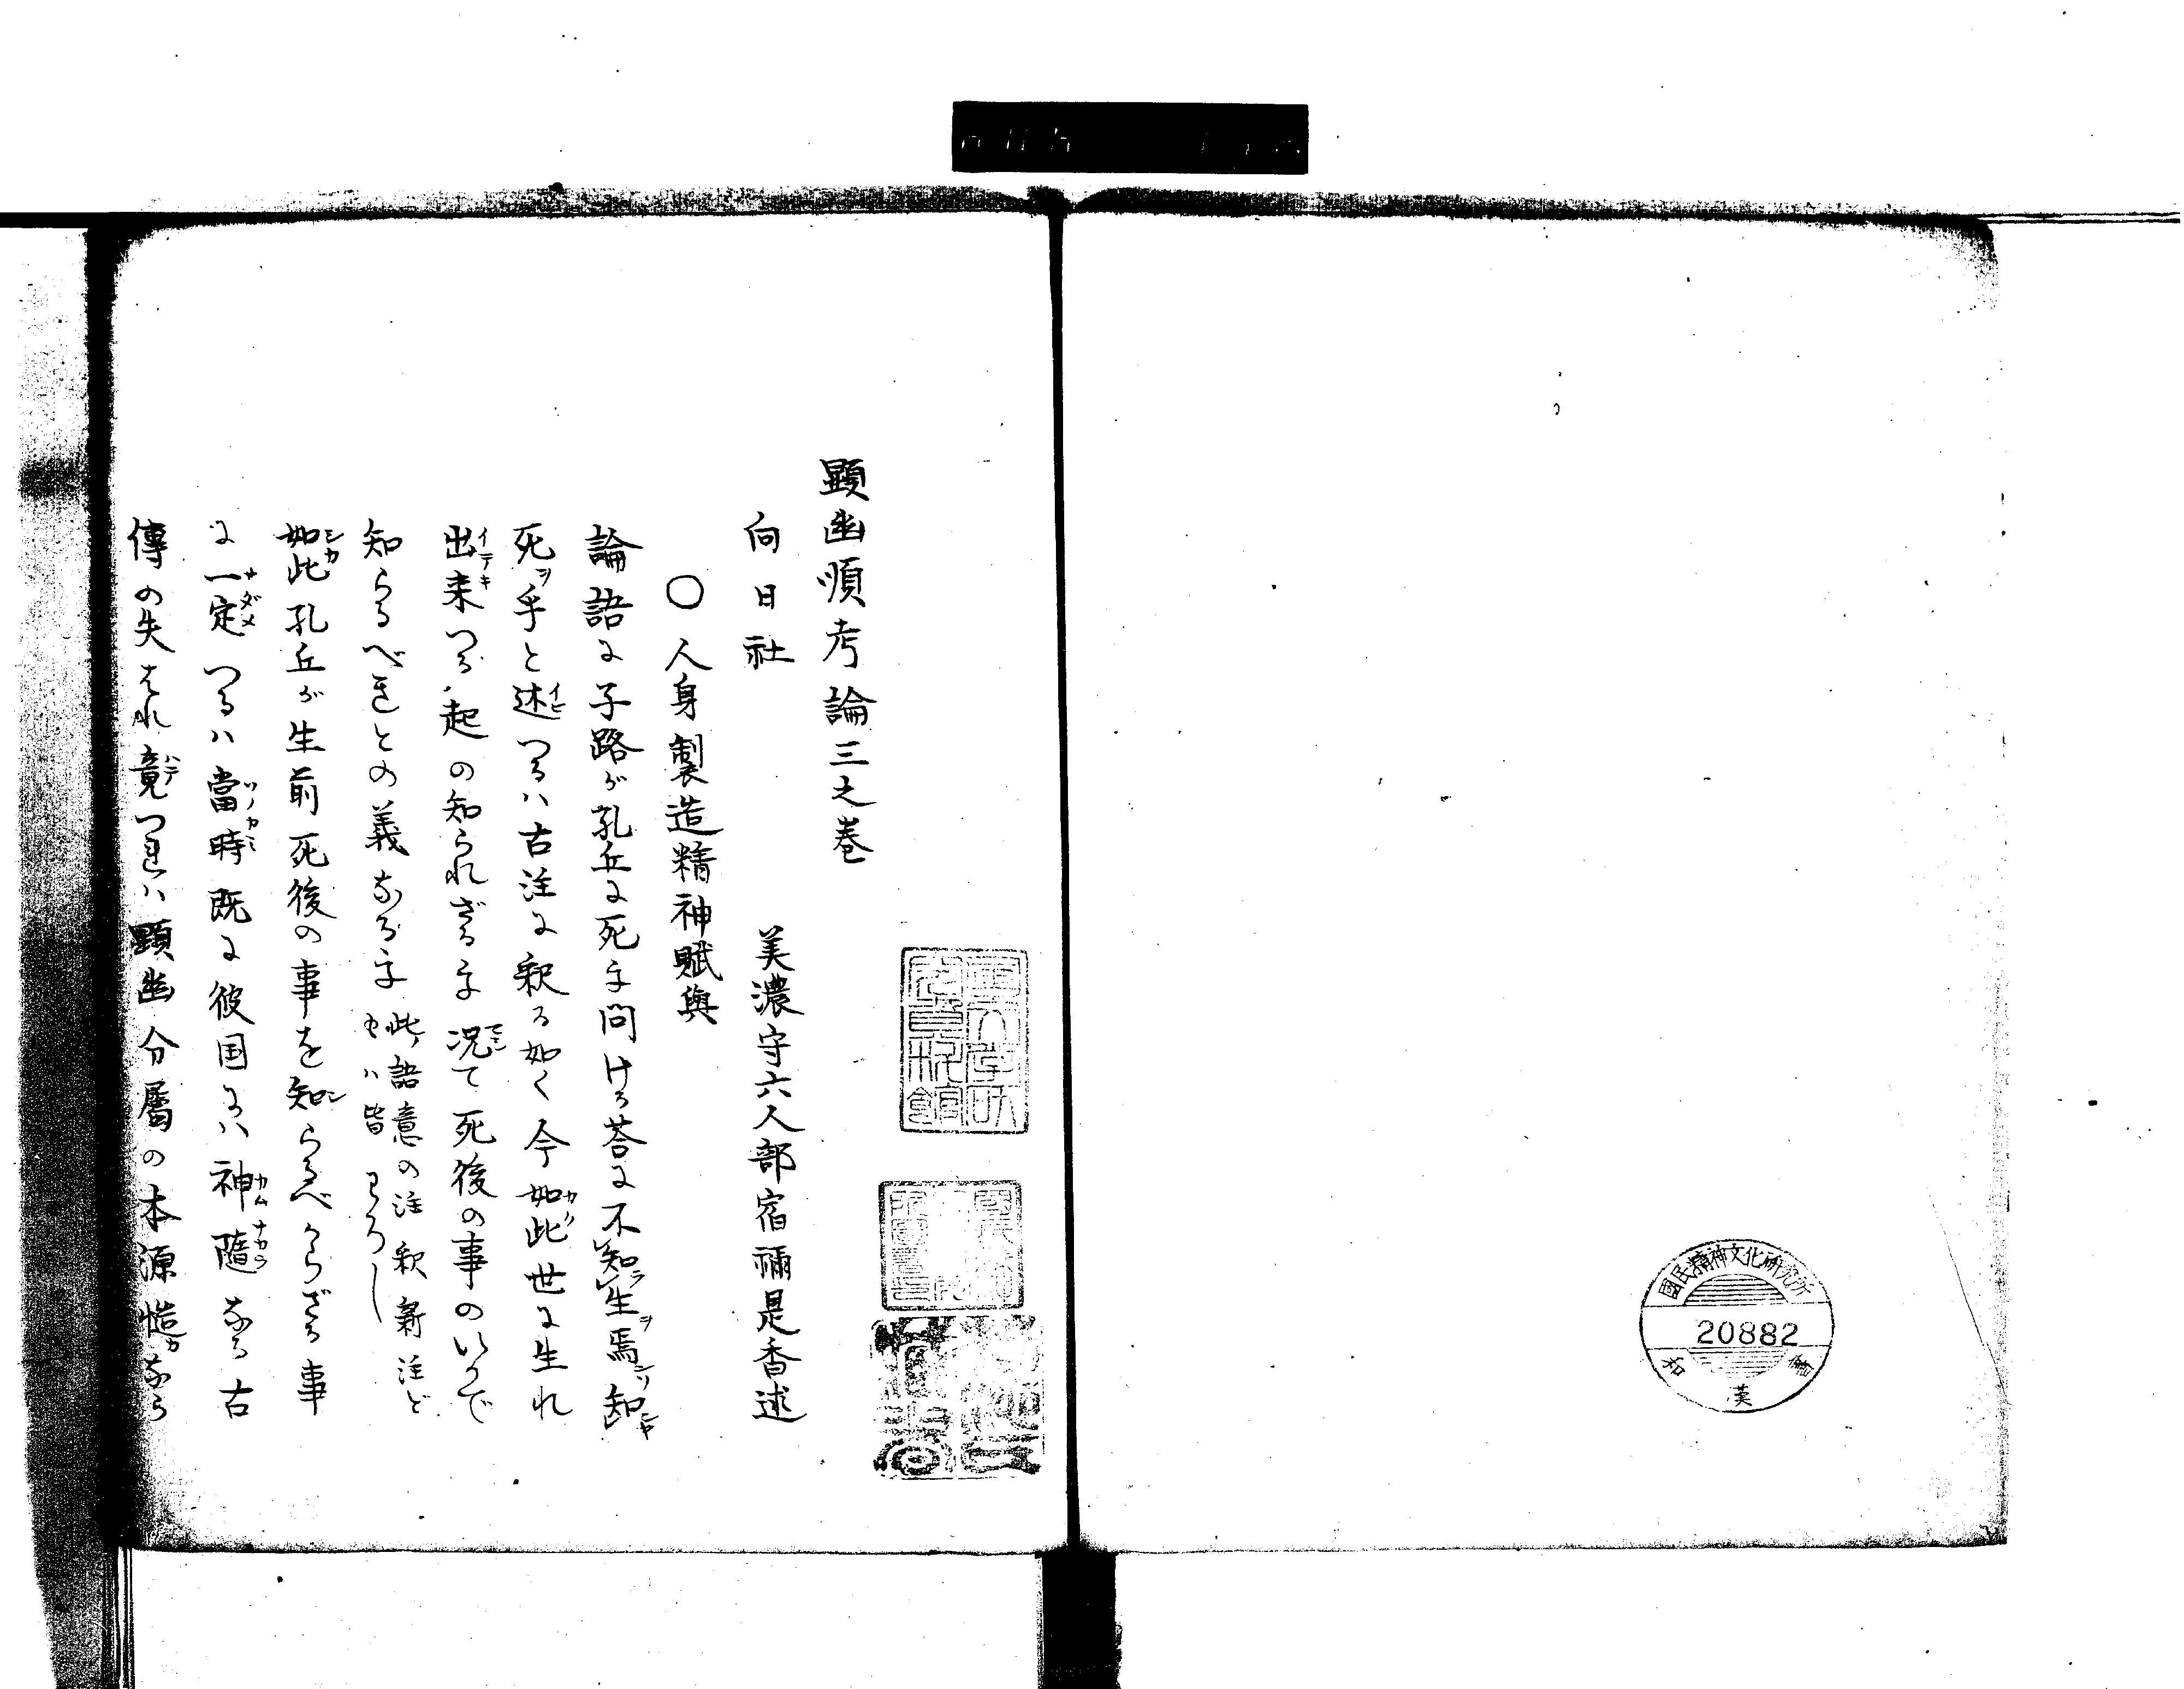 國民精神文化研究所
20882
和漢書
顯幽順考論三之巻
向日社 美濃守六人部宿禰是香述
○人身製造精神賦與
論語に子路が孔丘に死を問ける荅に不知生焉知
死乎と述つるハ古注に釈る如く今如此世に生れ
出来つる起の知られざるを况て死後の事のいかで
知らるべきとの義なるを此語意の注釈新注ど
もハ皆わろし
如此孔丘が生前死後の事を知らるべからざる事
に一定つるハ當時既に彼国にハ神隨なる古
傳の失はれ竟つれハ顕幽分属の本源慥なら